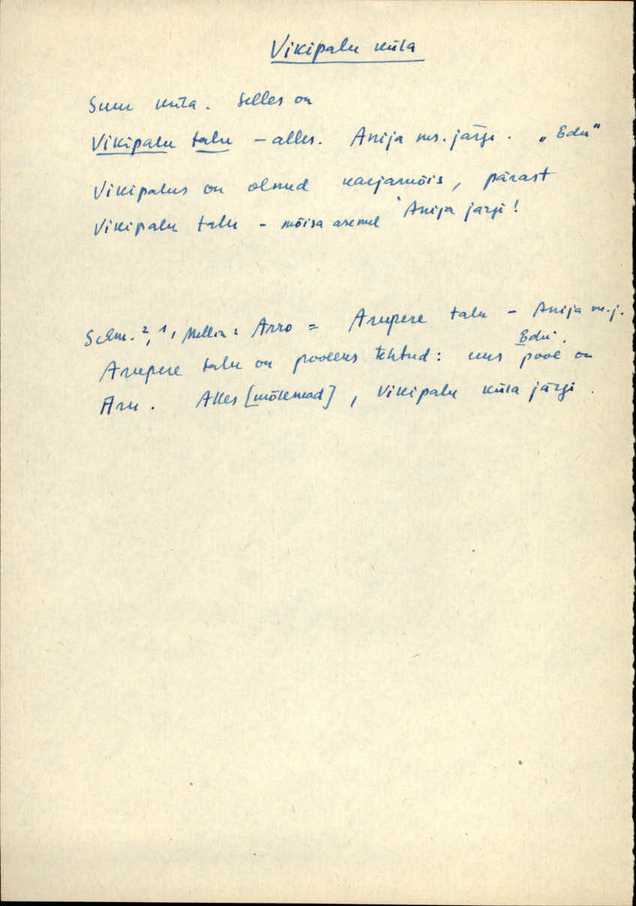 Vikipalu küla
Suur küla. Selles on
Vikipalu talu – alles. Anija ms. järgi. „Edu“
Vikipalus on olnud karjamõis, pärast
Vikipalu talu – mõisa asemel Anija järgi!
Schm. 2, 1, Mellin: Arro = Arupere talu – Anija m.j.
Arupere talu on pooleks tehtud: uus pool on Edu.
Aru. Alles [mõlemad], Vikipalu küla järgi.